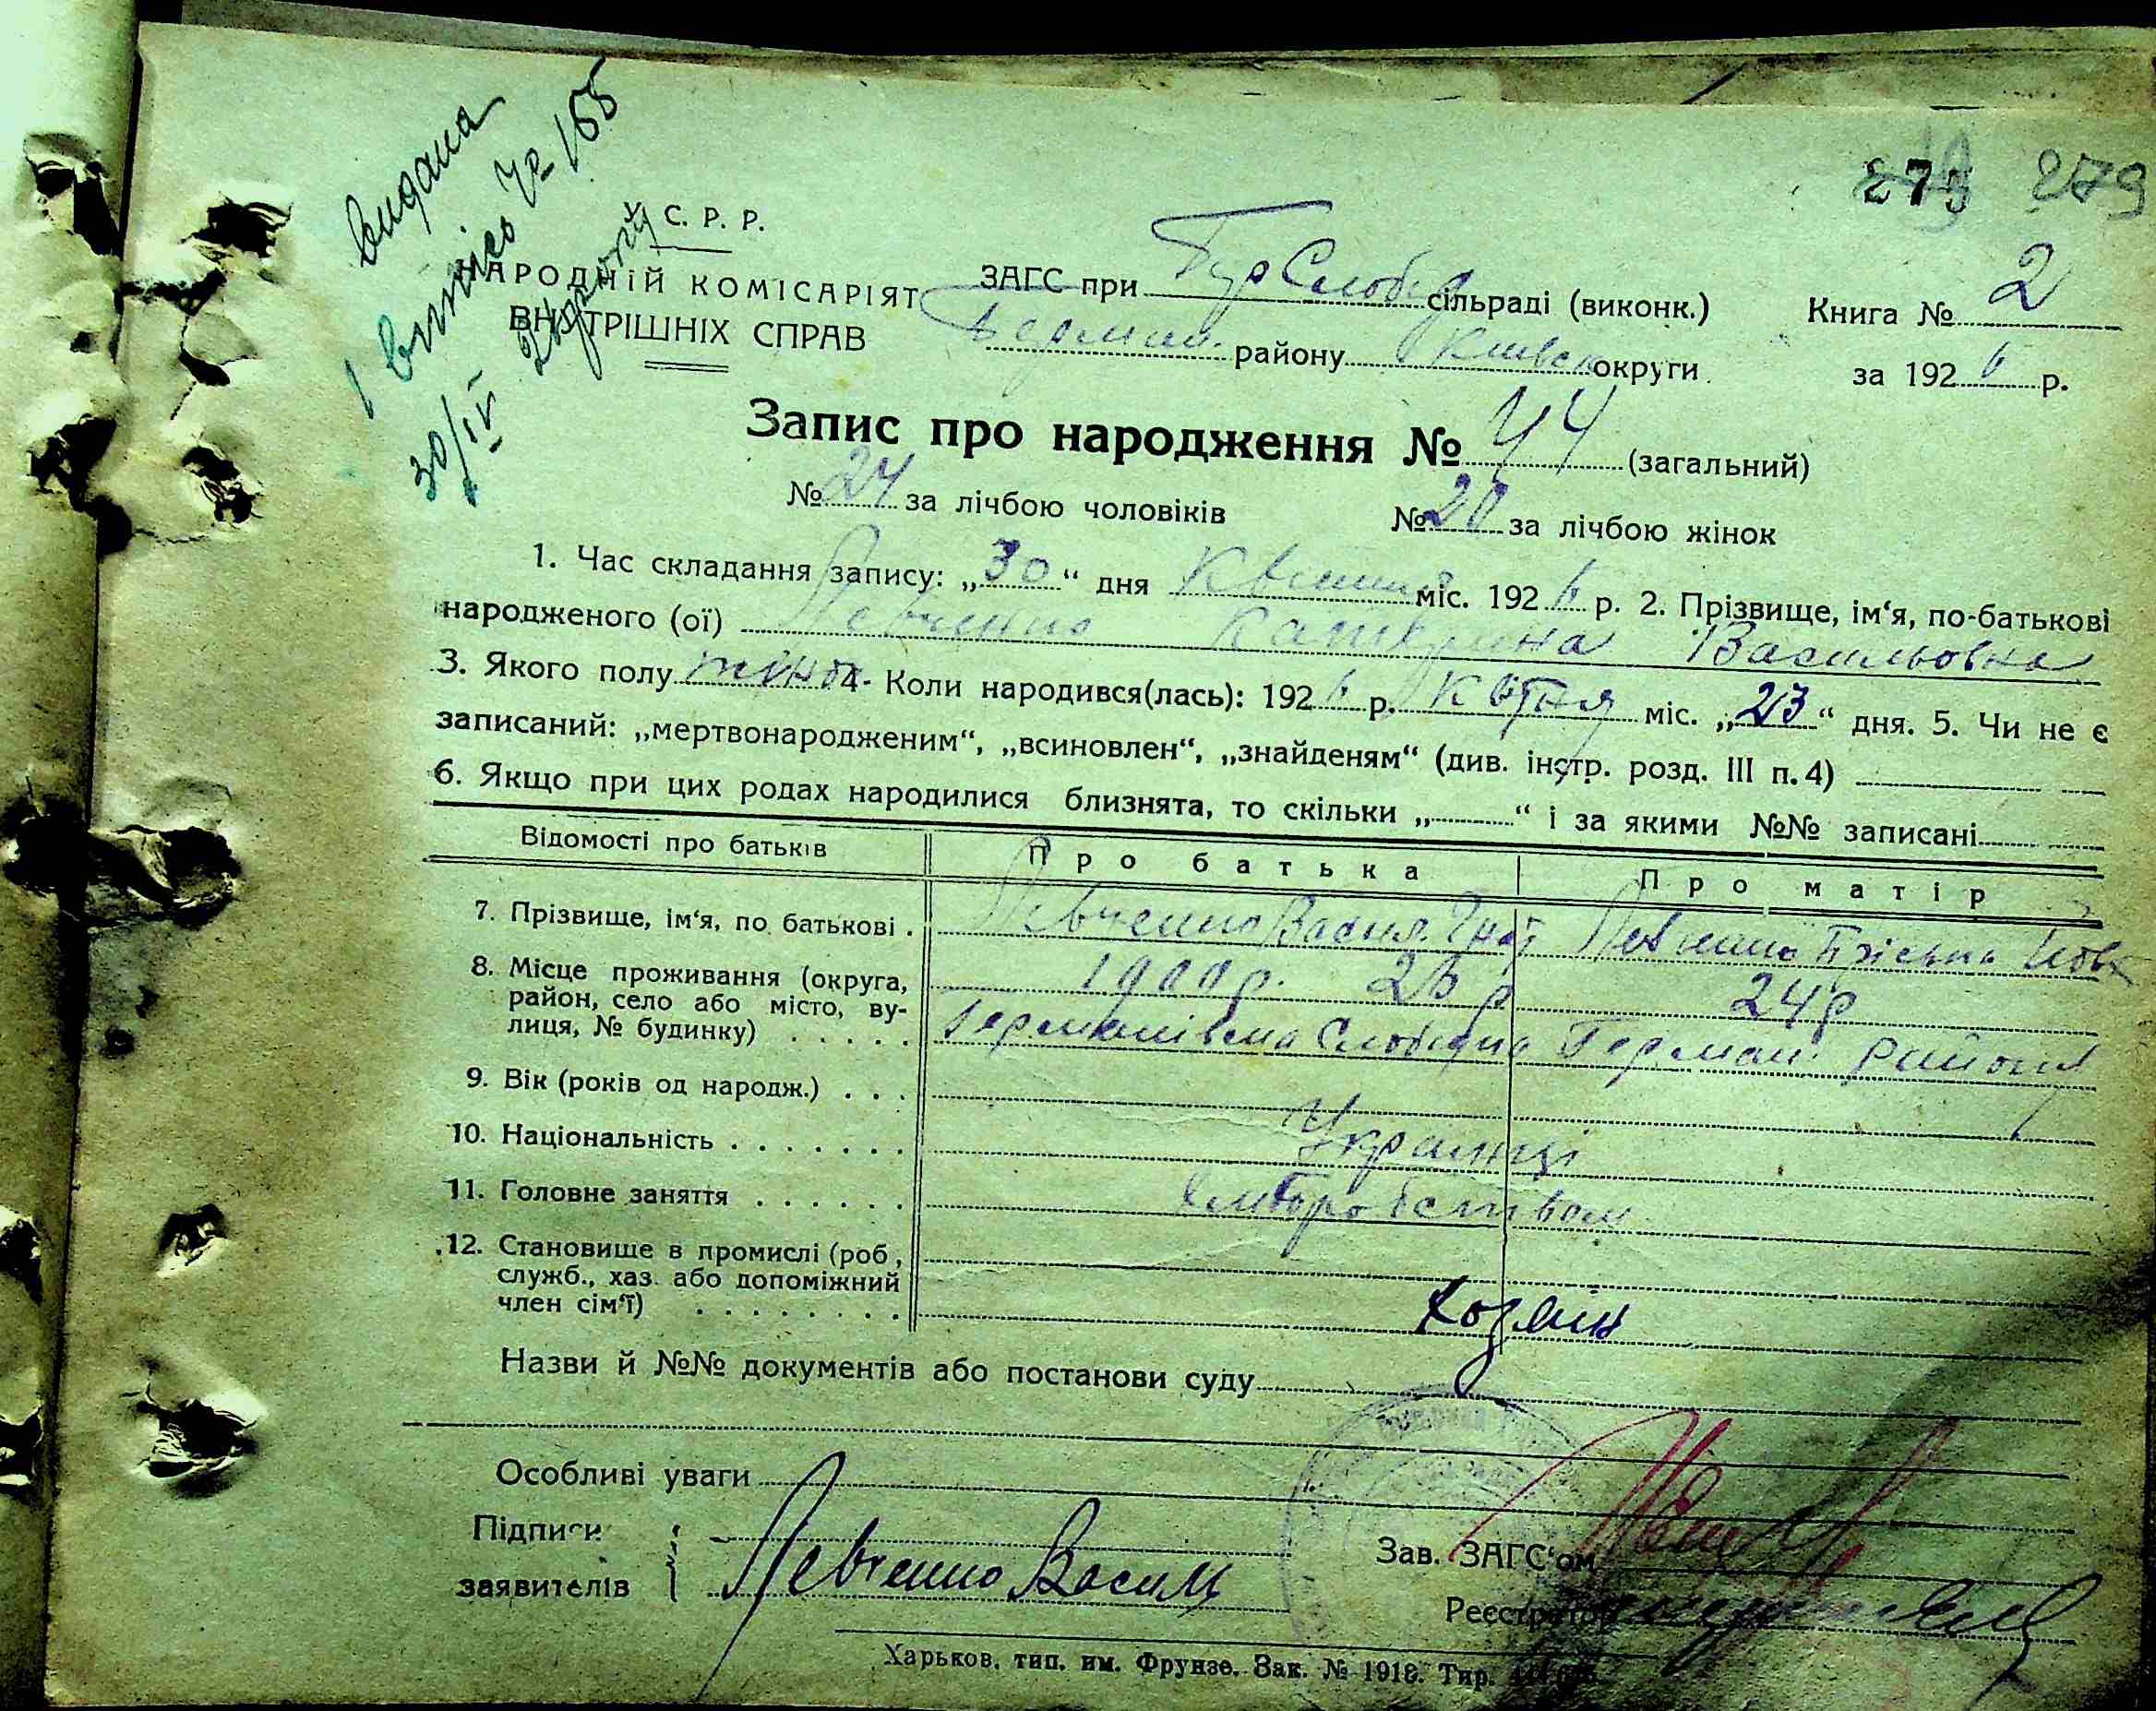 видана
1 випись № 155
30/IV
279
С. Р. Р.
НАРОДНІЙ КОМІСАРІЯТ
ВНУТРІШНІХ СПРАВ
ЗАГС при Слобід сільраді (виконк.) Книга № 2
Герман. району Київськ округи за 1926 р.
Запис про народження № 44 (загальний)
№ 24 за лічбою чоловіків № 20 за лічбою жінок
1. Час складання запису: „30“ дня Квітня міс. 1926 р. 2. Прізвище, ім‘я, по-батькові
народженого (ої) Левченко Катерина Васильовна
3. Якого полу жіноч 4. Коли народився(лась): 1926 р. Квітня міс. „23“ дня. 5. Чи не є
записаний: „мертвонародженим“, „всиновлен“, „знайденям“ (див. інстр. розд. III п. 4)
6. Якщо при цих родах народилися близнята, то скільки „ “ і за якими №№ записані
Відомості про батьків Про батька Про матір
7. Прізвище, ім‘я, по батькові . Левченко Васил. Гнат Левченко Пріська
8. Місце проживання (округа, 1900 р. 26 р 24 р
район, село або місто, ву-
лиця, № будинку) . . . . . Германівська Слобідка Герман. району
9. Вік (років од народж.) . . .
10. Національність . . . . . . . Українці
11. Головне заняття . . . . . . Хліборобством
12. Становище в промислі (роб,
служб., хаз. або допоміжний
член сім‘ї) . . . . . . . . Хозяїн
Назви й №№ документів або постанови суду
Особливі уваги
Підписи
заявителів Левченко Василь
Зав. ЗАГС‘ом
Реєстратор
Харьков, тип. им. Фрунзе. Зак. № 1918. Тир.